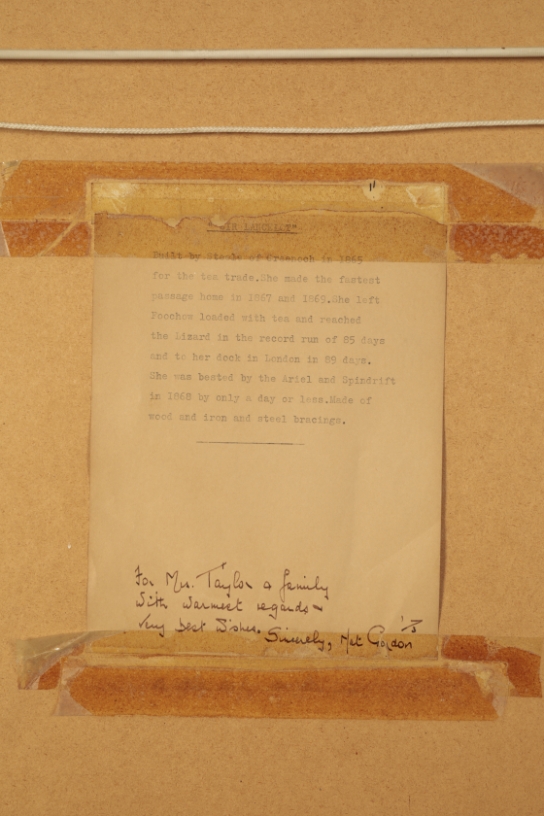 Built by Steele of Greenock in 1865
for the tea trade.She made the fastest
passage home in 1867 and 1869.She left
Foochow loaded with tea and reached
the Lizard in the record run of 85 days
and to her dock in London in 89 days.
She was bested by the Ariel and Spindrift
in 1868 by only a day or less.Made of
wood and iron and steel bracings.
For Mrs. Taylor & family
With warmest regards –
Very best wishes.
Sincerely, Gordon